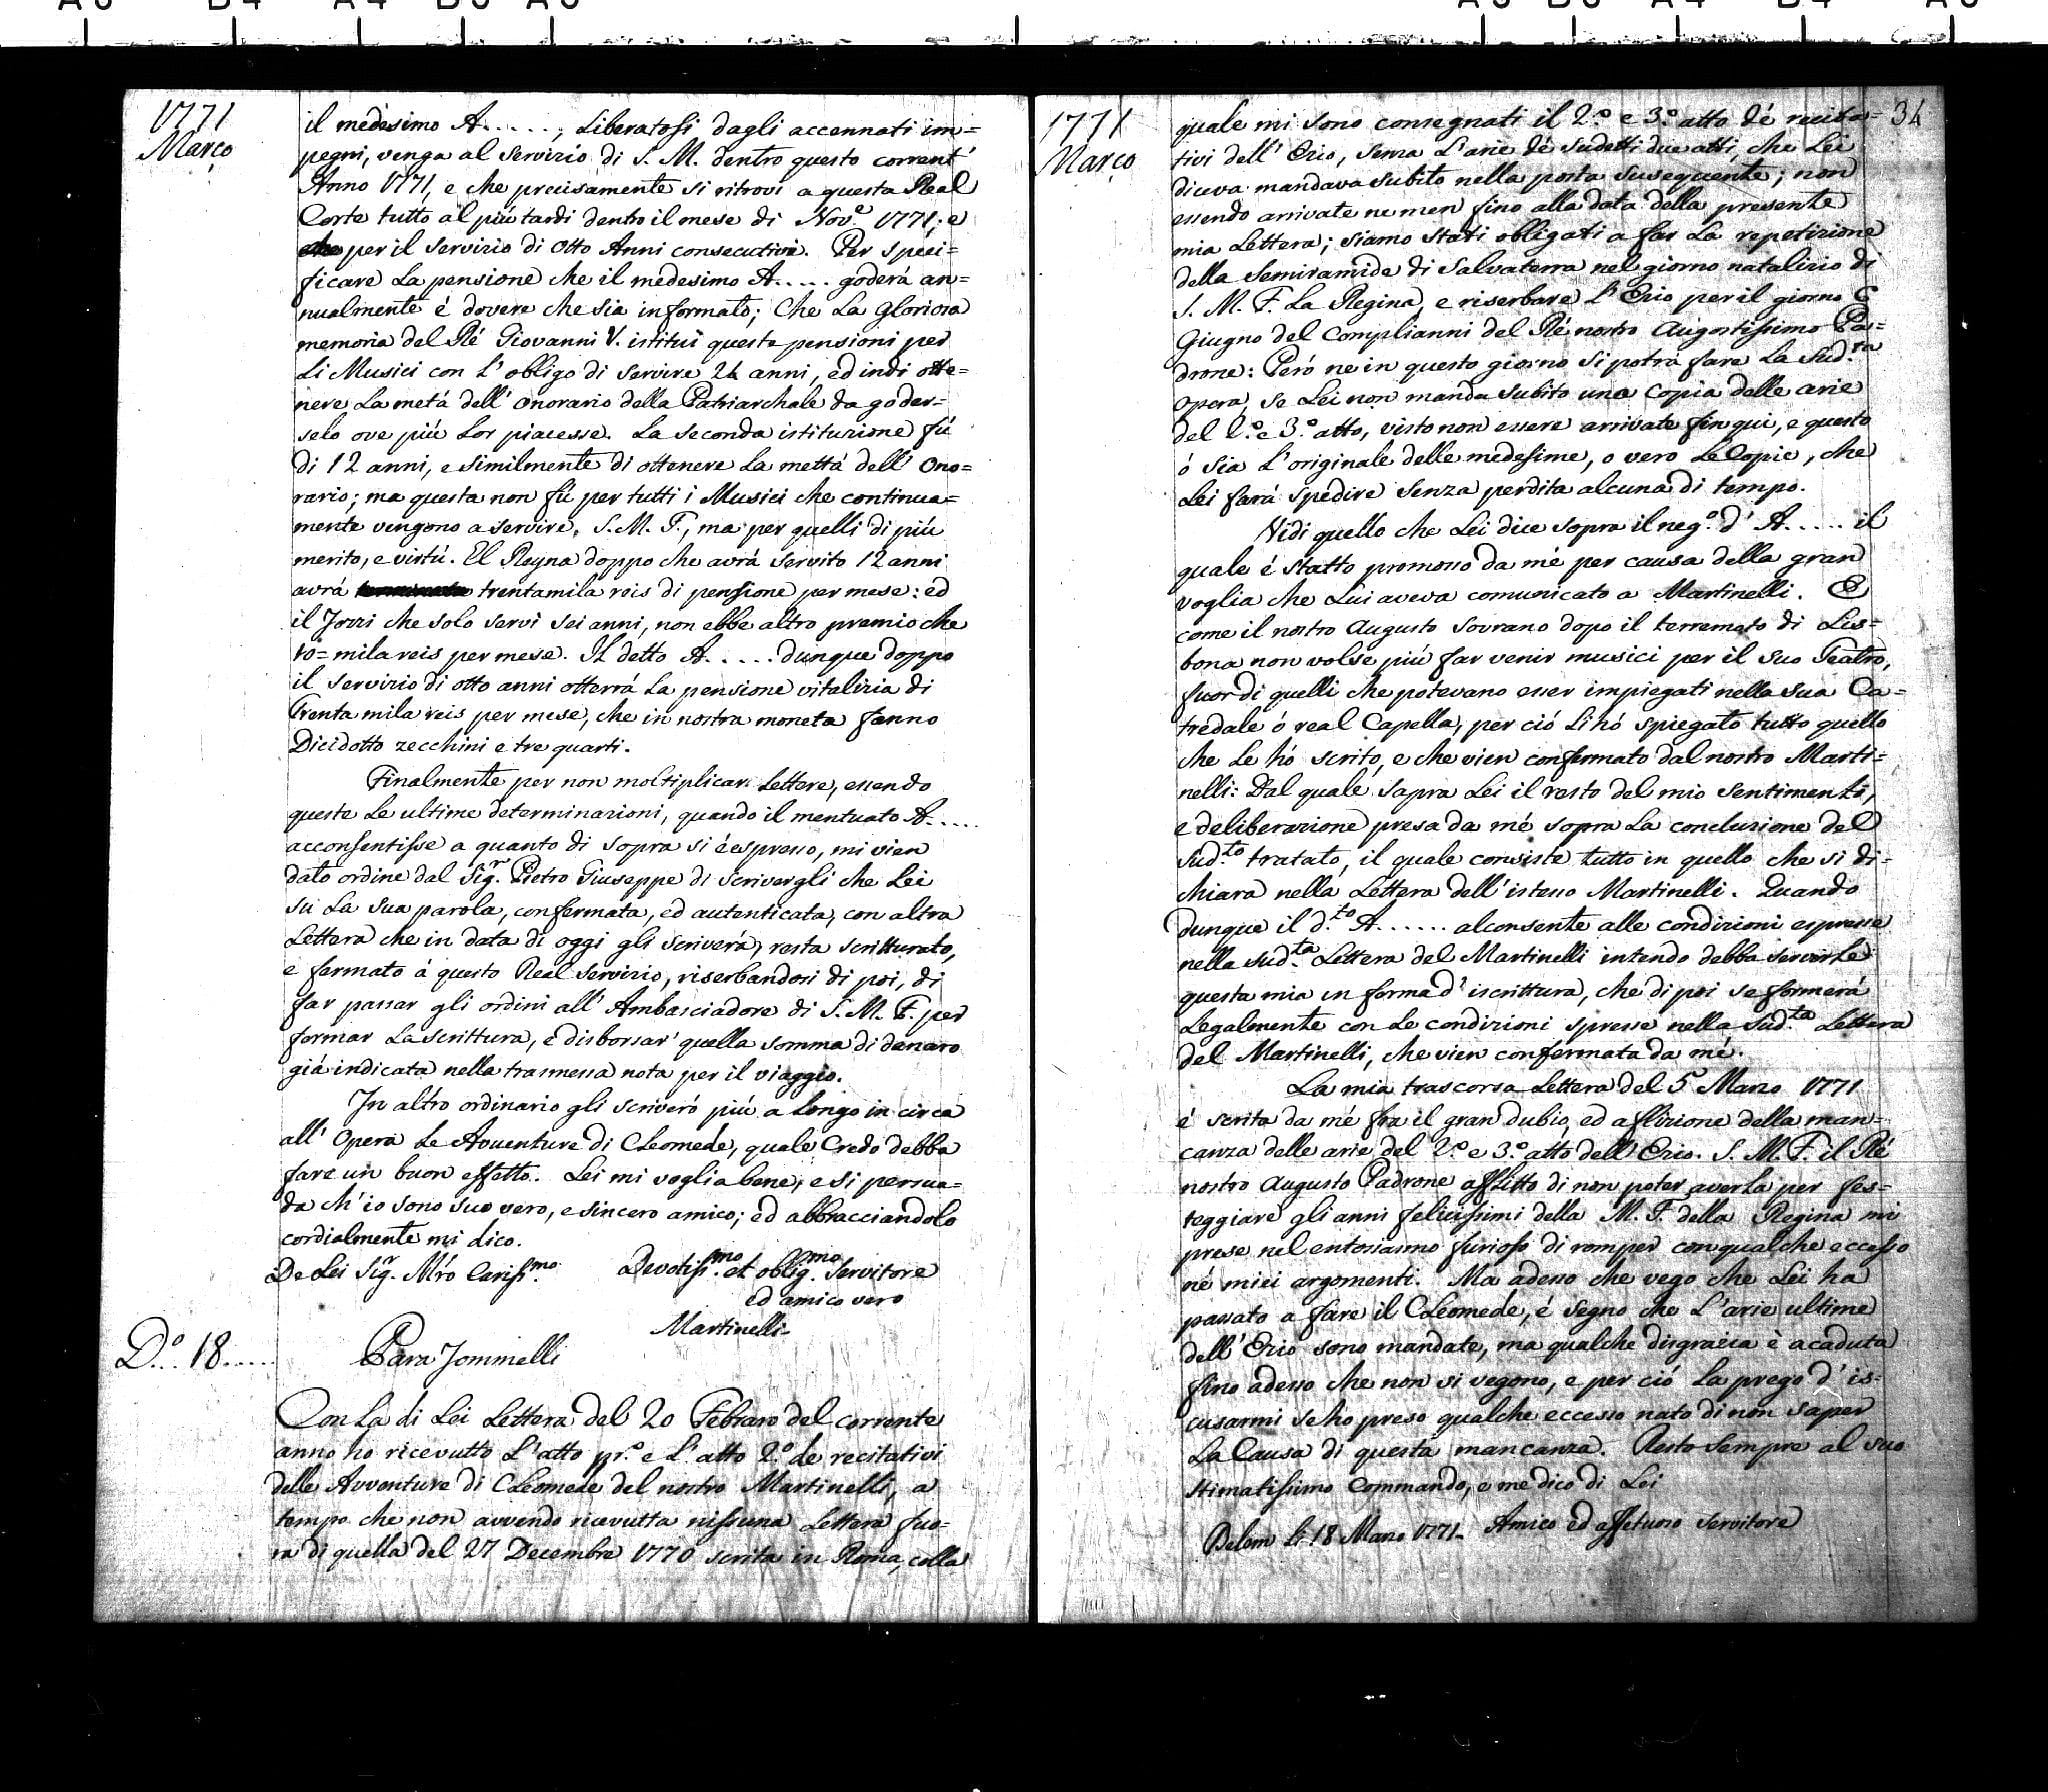 A3 B4 A4 B5 A5
A5 B5 A4 B4 A3
1771
Março
il medesimo A....., Liberatosi dagli accennati im=
pegni, venga al servizio di S. M. dentro questo corrent'
Anno 1771, e che precisamente si ritrovi a questa Real
Corte tutto al piú tardi dentro il mese di Nov.e 1771; e
che per il servizio di otto Anni consecutivi. Per speci=
ficare La pensione che il medesimo A..... goderá an=
nualmente é dovere che sia informato; Che La Gloriosa
memoria del Ré Giovanni V. istituì queste pensioni per
Li Musici con L'obligo di servire 24 anni, ed indi otte=
nere La metá dell'onorario della Patriarchale da goder=
selo ove piú Lor piacesse. La seconda istituzione fú
di 12 anni, e similmente di ottenere La mettá dell'ono=
rario; ma questa non fú per tutti i Musici che continua=
mente vengono a servire, S. M. F., ma per quelli di piú
merito, e virtú. El Reyna doppo che avrá servito 12 anni
avrá trentamila reis di pensione per mese: ed
il Jozzi che solo servì sei anni, non ebbe altro premio che
10=mila reis per mese. Il detto A..... dunque doppo
il servizio di otto anni otterrá La pensione vitalizia di
Trenta mila reis per mese, che in nostra moneta fanno
Dicidotto zecchini e tre quarti.
Finalmente per non moltiplicar Lettere, essendo
queste Le ultime determinazioni, quando il mentuato A.....
acconsentisse a quanto di sopra si é espresso, mi vien
dato ordine dal Sig.r Pietro Giuseppe di scrivergli che Lei
su La sua parola, confermata, ed autenticata, con altra
Lettera che in data di oggi gli scriverá, resta scritturato,
e fermato á questo Real servizio, riserbandosi di poi, di
far passar gli ordini all'Ambasciadore di S. M. F. per
formar La scrittura, e disborsar' quella somma di danaro
giá indicata nella trasmessa nota per il viaggio.
In altro ordinario gli scriveró piú a Longo in circa
all'Opera Le Avventure di Cleomede, quale Credo debba
fare un buon effetto. Lei mi voglia bene, e si persua=
da ch'io sono suo vero, e sincero amico; ed abbracciandolo
cordialmente mi dico.
De Lei Sig.r Mro Caris.mo Devotis.mo et oblig.mo Servitore
ed amico vero
Martinelli
D.o 18..... Para Jommelli
Con La di Lei Lettera del 20 Febraro del corrente
anno ho ricevutto L'atto pr.o e L'atto 2.o de recitativi
delle Avventure di Cleomede del nostro Martinelli, a
tempo che non avvendo ricevutta nissuna Lettera fuo=
ra di quella del 27 Decembre 1770 scrita in Roma, colla
1771
Março
34
quale mi sono consegnati il 2.o e 3.o atto dé recita=
tivi dell'Ezio, senza L'arie dé sudetti due atti, che Lei
diceva mandava subito nella posta susequente; non
essendo arrivate ne men fino alla data della presente
mia Lettera; siamo stati obligati a far La repetizione
della Semiramide di Salvaterra nel giorno natalizio di
S. M. F. La Regina, e riserbare L'Ezio per il giorno 6
Giugno del Complianni del Ré nostro Augostissimo Pa=
drone: Peró ne in questo giorno si potrá fare La sud.ta
opera, se Lei non manda subito una Copia delle arie
del 2.o e 3.o atto, visto non essere arrivate fin qui, e questo
ó sia L'originale delle medesime, o vero Le Copie, che
Lei fará spedire senza perdita alcuna di tempo.
Vidi quello che Lei dice sopra il neg.o d'A..... il
quale é statto promosso da mé per causa della gran
voglia che Lui aveva comunicato a Martinelli. E
come il nostro Augusto Sovrano dopo il terremoto di Lis=
bona non volse piú far venir musici per il suo Teatro,
fuor di quelli che potevano esser impiegati nella sua Ca=
tredale ó real Capella, per ció Li hó spiegato tutto quello
che Le hó scrito, e che vien confermato dal nostro Marti=
nelli: Dal quale sapra Lei il resto del mio sentimento,
e deliberazione presa da mé sopra La conclusione del
sud.to tratato, il quale consiste tutto in quello che si di=
chiara nella Lettera dell'istesso Martinelli. Quando
dunque il d.to A...... alconsente alle condizioni espresse
nella sud.ta Lettera del Martinelli intendo debba servirLe
questa mia in forma d'iscrittura, che di poi se formerá
Legalmente con Le condizioni spresse nella sud.ta Lettera
del Martinelli, che vien confermata da mé.
La mia trascorsa Lettera del 5 Marzo 1771
é scrita da mé fra il gran dubio, ed aflizione della man=
canza delle arie del 2.o e 3.o atto dell'Ezio. S. M. F. il Ré
nostro Augusto Padrone afflitto di non poter averla per fes=
teggiare gli anni felicissimi della M. F. della Regina mi
prese nel entosiasmo furioso di romper con qualche eccesso
né miei argomenti. Ma adesso che vego che Lei ha
passato a fare il Cleomede, é segno che L'arie ultime
dell'Ezio sono mandate, ma qualche disgrazia è acaduta
fino adesso che non vi vegono, e per ció La prego d'is=
cusarmi se ho preso qualche eccesso nato di non saper
La Causa di questa mancanza. Resto sempre al suo
stimatissimo Commando, e me dico di Lei
Belem Li 18 Marzo 1771. Amico ed affetuoso servitore